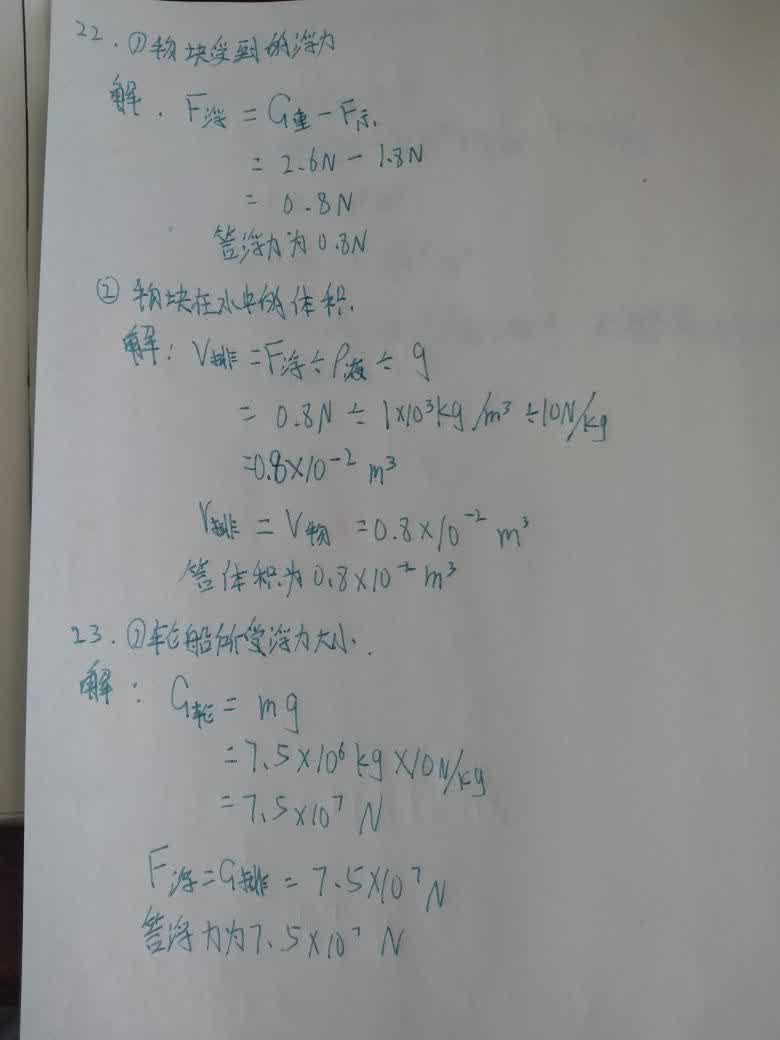 22. ①物块受到的浮力
解. F浮 = G重 - F示
= 2.6N - 1.8N
= 0.8N
答浮力为0.8N
② 物块在水中的体积.
解: V排 = F浮 ÷ ρ液 ÷ g
= 0.8N ÷ 1×10³kg/m³ ÷ 10N/kg
=0.8×10⁻² m³
V排 = V物 = 0.8×10⁻² m³
答体积为0.8×10⁻² m³
23. ①轮船所受浮力大小.
解: G轮 = mg
= 7.5×10⁶ kg×10N/kg
= 7.5×10⁷ N
F浮=G排 = 7.5×10⁷ N
答浮力为7.5×10⁷ N